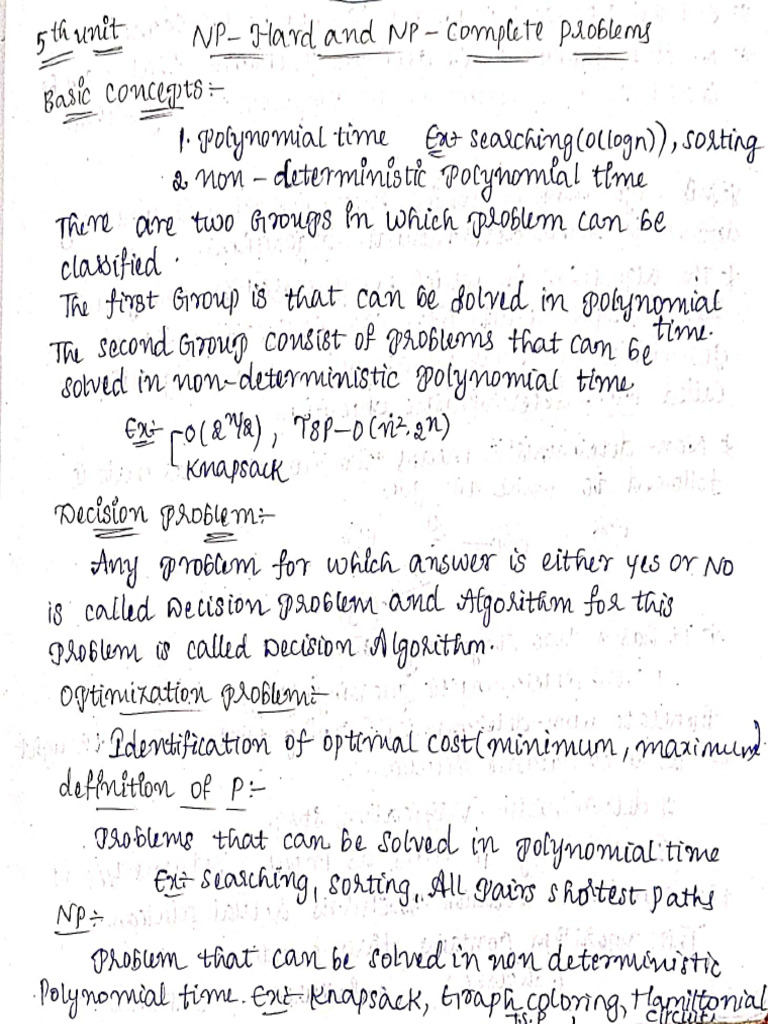 5th unit NP-Hard and NP-Complete Problems
Basic Concepts:-
1. Polynomial time Ex:- searching(O(logn)), sorting
2 non-deterministic polynomial time
There are two Groups in which problem can be
classified.
The first Group is that can be solved in polynomial
time.
The second Group consist of problems that can be
solved in non-deterministic polynomial time
Ex:- O(2^n/2), TSP-O(n².2^n)
Knapsack
Decision problem:-
Any problem for which answer is either yes or NO
is called Decision problem and Algorithm for this
problem is called Decision Algorithm.
Optimization problem:-
Identification of optimal cost(minimum, maximum)
definition of P:-
Problems that can be solved in polynomial time
Ex:- searching, sorting, All pairs shortest paths
NP:-
Problem that can be solved in non deterministic
Polynomial time. Ex:- Knapsack, Graph coloring, Hamiltonial
T.S.P circuit